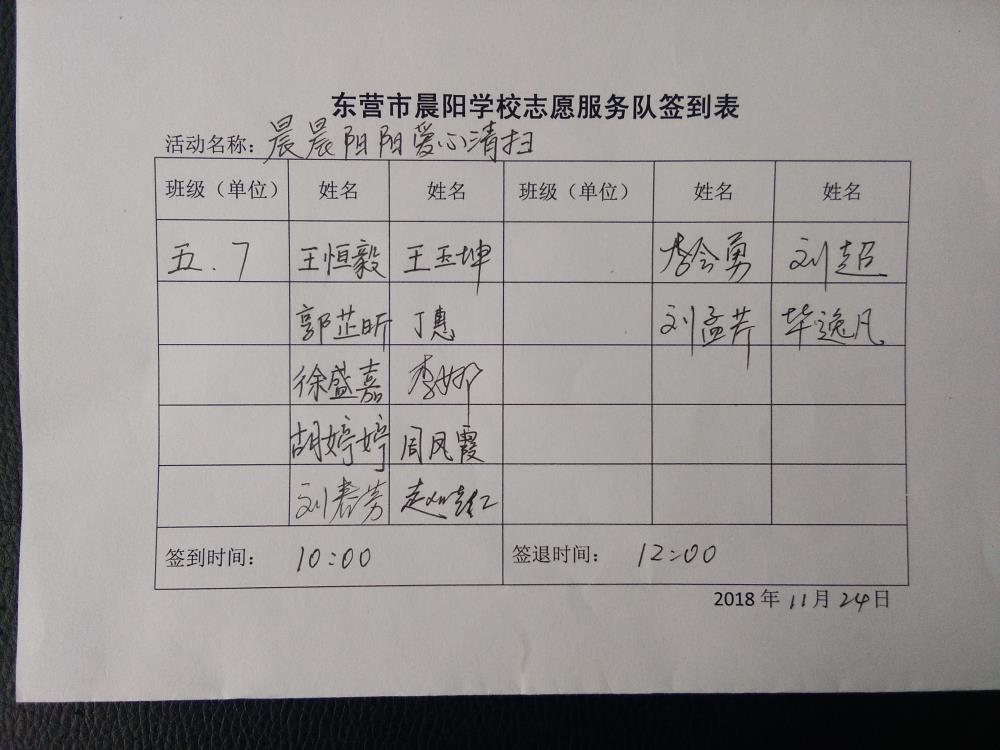 东营市晨阳学校志愿服务队签到表
活动名称：晨晨阳阳爱心清扫
班级（单位） 姓名 姓名 班级（单位） 姓名 姓名
五.7 王恒毅 王玉坤 李会勇 刘超
郭芷昕 丁惠 刘孟芹 毕逸凡
徐盛嘉 李娜
胡婷婷 周凤霞
刘春芳
签到时间： 10:00 签退时间： 12:00
2018年11月24日